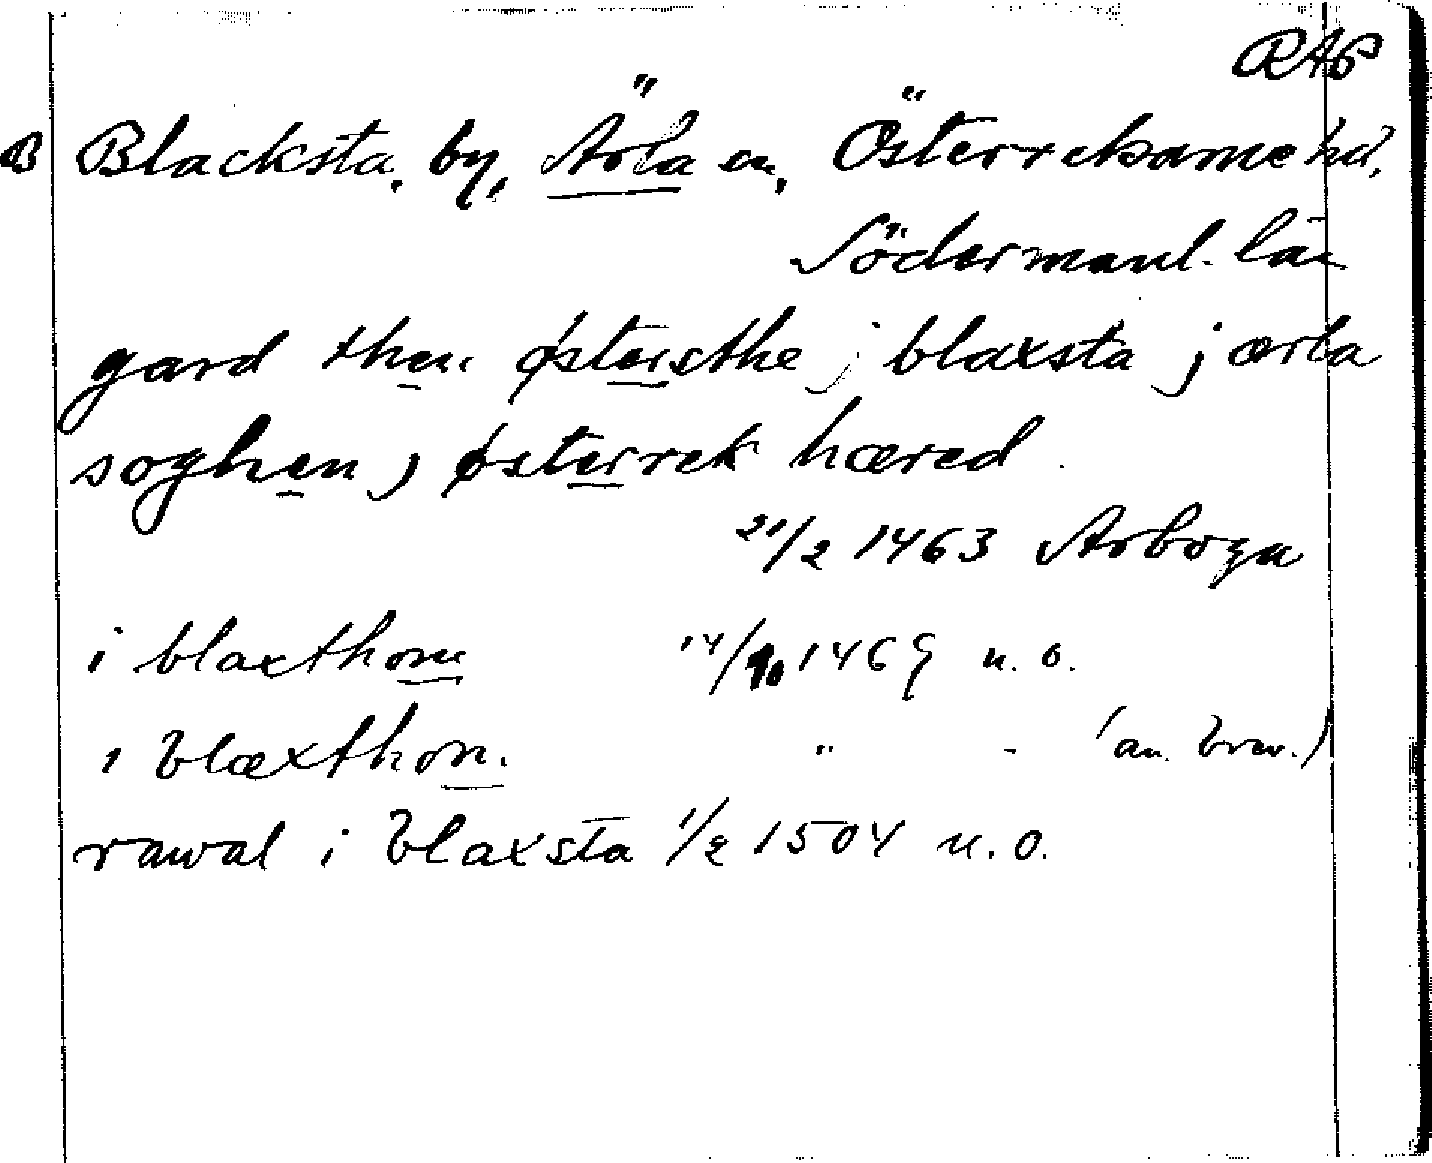 RAP
B Blacksta, by, Ärla sn, Österrekarne hd,
Södermanl. län
gard then østersthe j blaxsta j ærla
soghen j østerrek hæred.
21/2 1463 Arboga
i blaxthom 14/10 1469 u. o.
i blæxthom. " - (an. brev.)
rawal i blaxsta 1/2 1504 u. o.